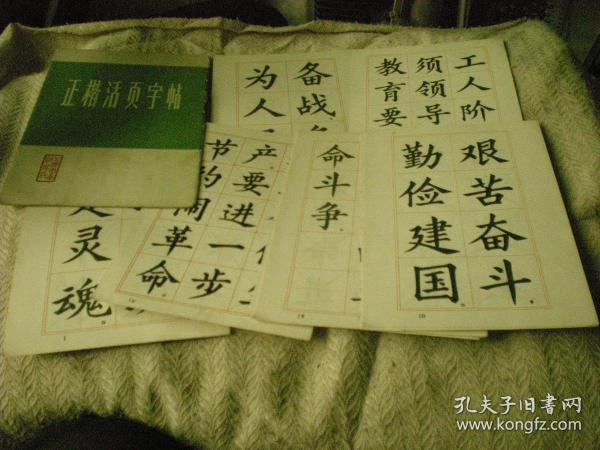 正楷活页字帖
备战
为人
工人阶
须领导
教育要
灵
魂
产要进一步
节约闹革命
命斗争
艰苦奋斗
勤俭建国
孔夫子旧書网
www.kongfz.com